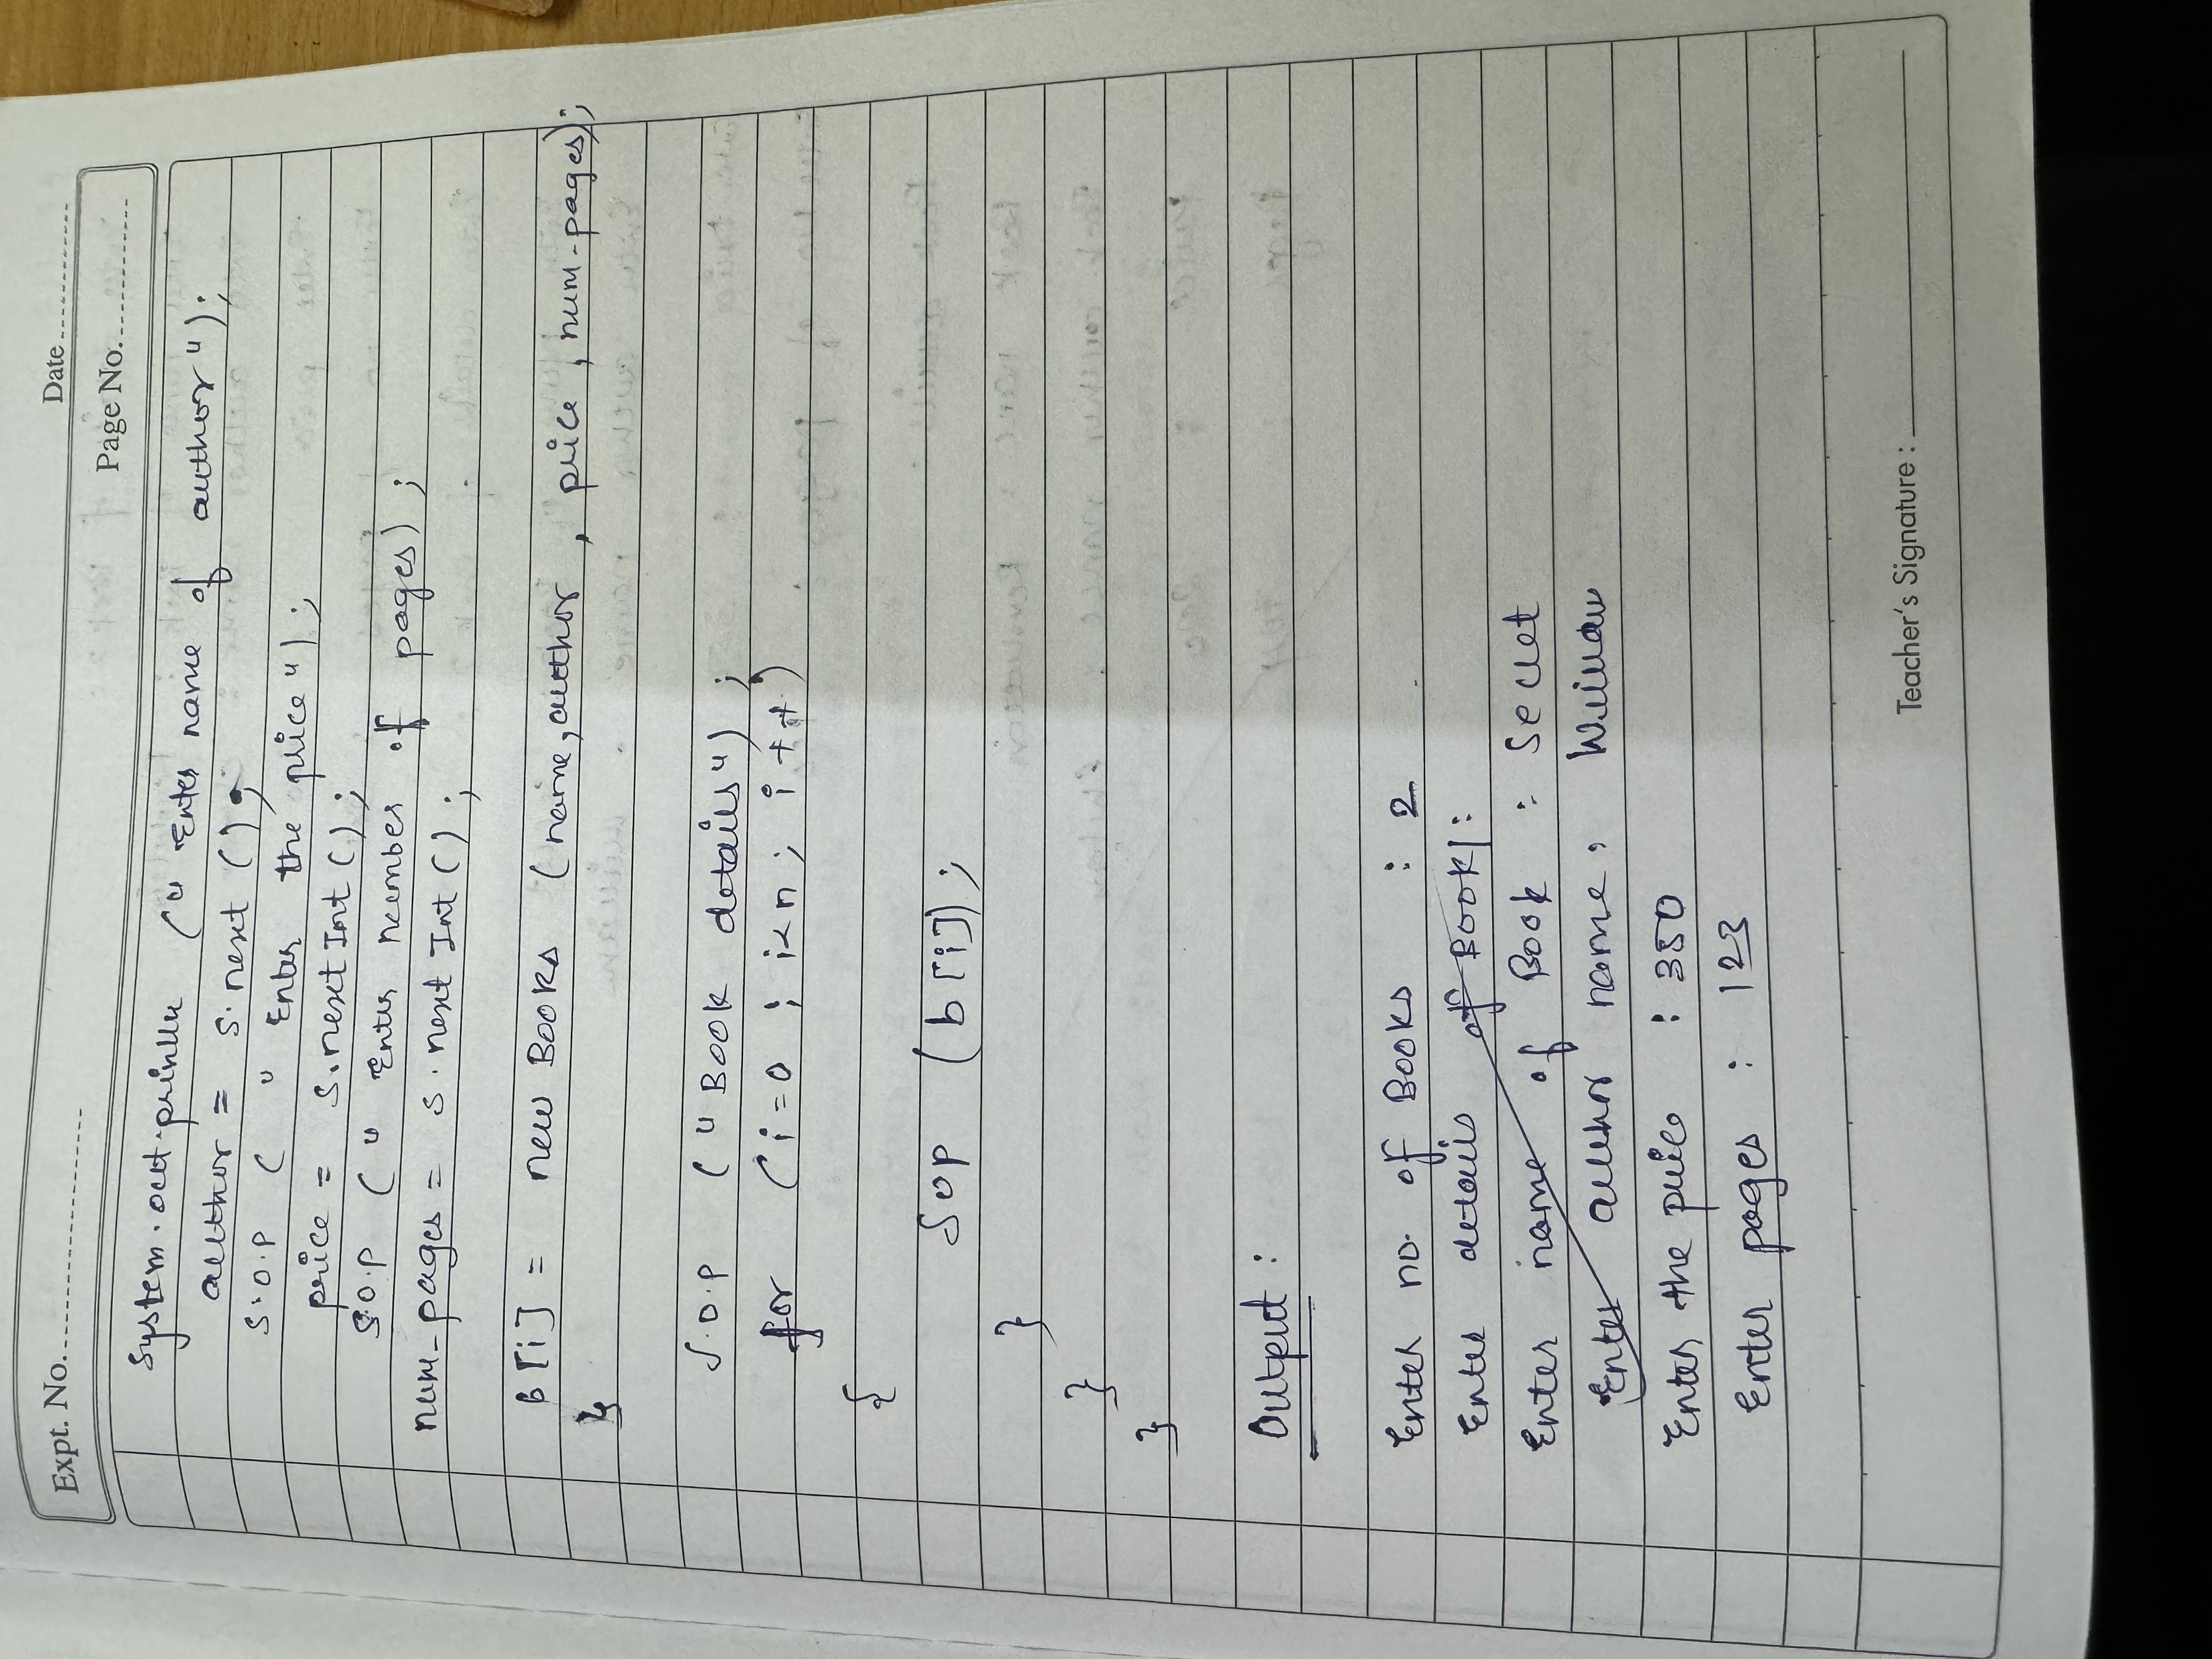 Expt. No.
Date
Page No.
System.out.println (" Enter name of author");
author = s.next ();
S.O.P ( " Enter the price");
price = s.nextInt ();
S.O.P (" Enter number of pages) ;
num_pages = s.next Int ();
b[i] = new Books (name, author , price , num_pages);
}
S.O.P (" Book details") ;
for (i=0 ; i<n ; i++)
{
SOP (b[i]);
}
}
}
Output :
Enter no. of Books : 2
Enter details of Book1:
Enter name of Book : Secret
Enter author name:
Enter the price : 350
Enter pages : 123
Teacher's Signature :